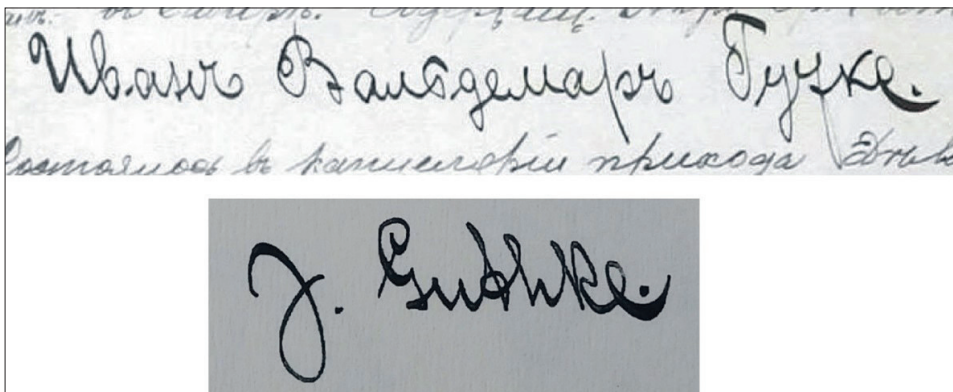 Иванъ Вальдемаръ Гуцке.
состоялось въ канцеляріи прихода
J. Guthke.